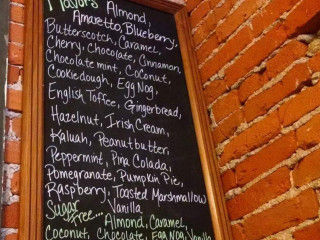 Flavors Almond,
Amaretto, Blueberry,
Butterscotch, Caramel,
Cherry, Chocolate, Cinnamon,
Chocolate mint, Coconut,
Cookie dough, Egg Nog,
English Toffee, Gingerbread,
Hazelnut, Irish Cream,
Kaluah, Peanut butter,
Peppermint, Piña Colada,
Pomegranate, Pumpkin Pie,
Raspberry, Toasted Marshmallow
Vanilla
Sugar
Free... Almond, Caramel,
Coconut, Chocolate, Egg Nog, Vanilla